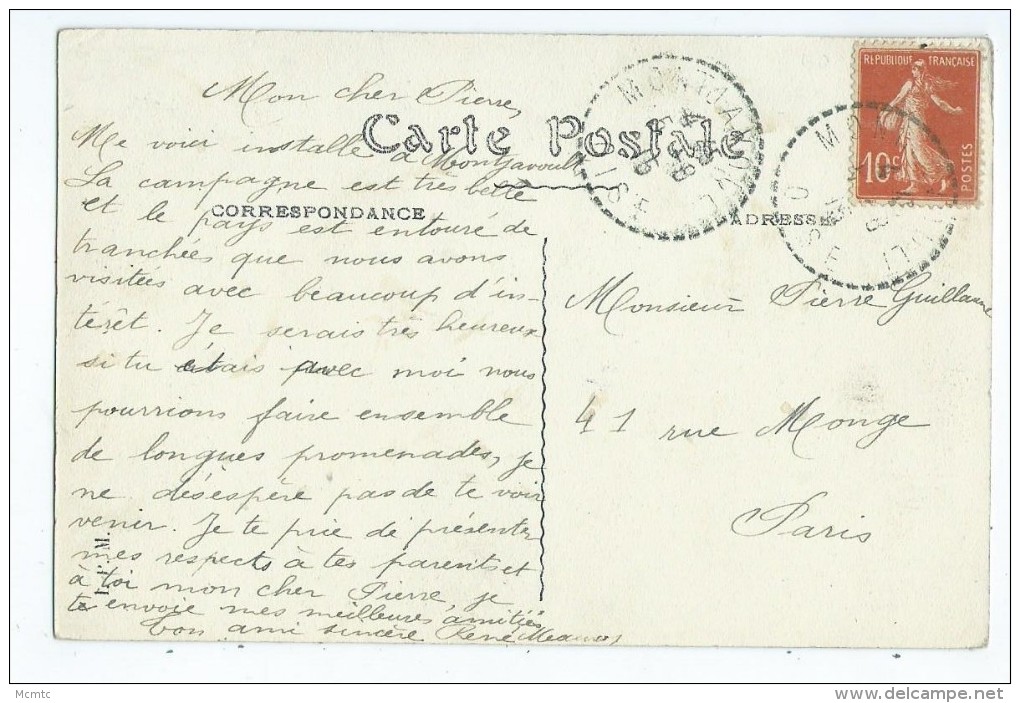 Mon cher Pierre,
Carte Postale
Me voici installé à Montjavoult
La campagne est très belle
CORRESPONDANCE
et le pays est entouré de
tranchées que nous avons
visitées avec beaucoup d'in-
térêt. Je serais très heureux
si tu étais avec moi nous
pourrions faire ensemble
de longues promenades, je
ne désespère pas de te voir
venir. Je te prie de présenter
mes respects à tes parents et
à toi mon cher Pierre, je
te envoie mes meilleures amitiés
Ton ami sincère René
I. P. M.
MONTJAVOULT
OISE
RÉPUBLIQUE FRANÇAISE
10c
POSTES
ADRESSE
Monsieur Pierre Guillaume
41 rue Monge
Paris
Mcmtc
delcampe.net